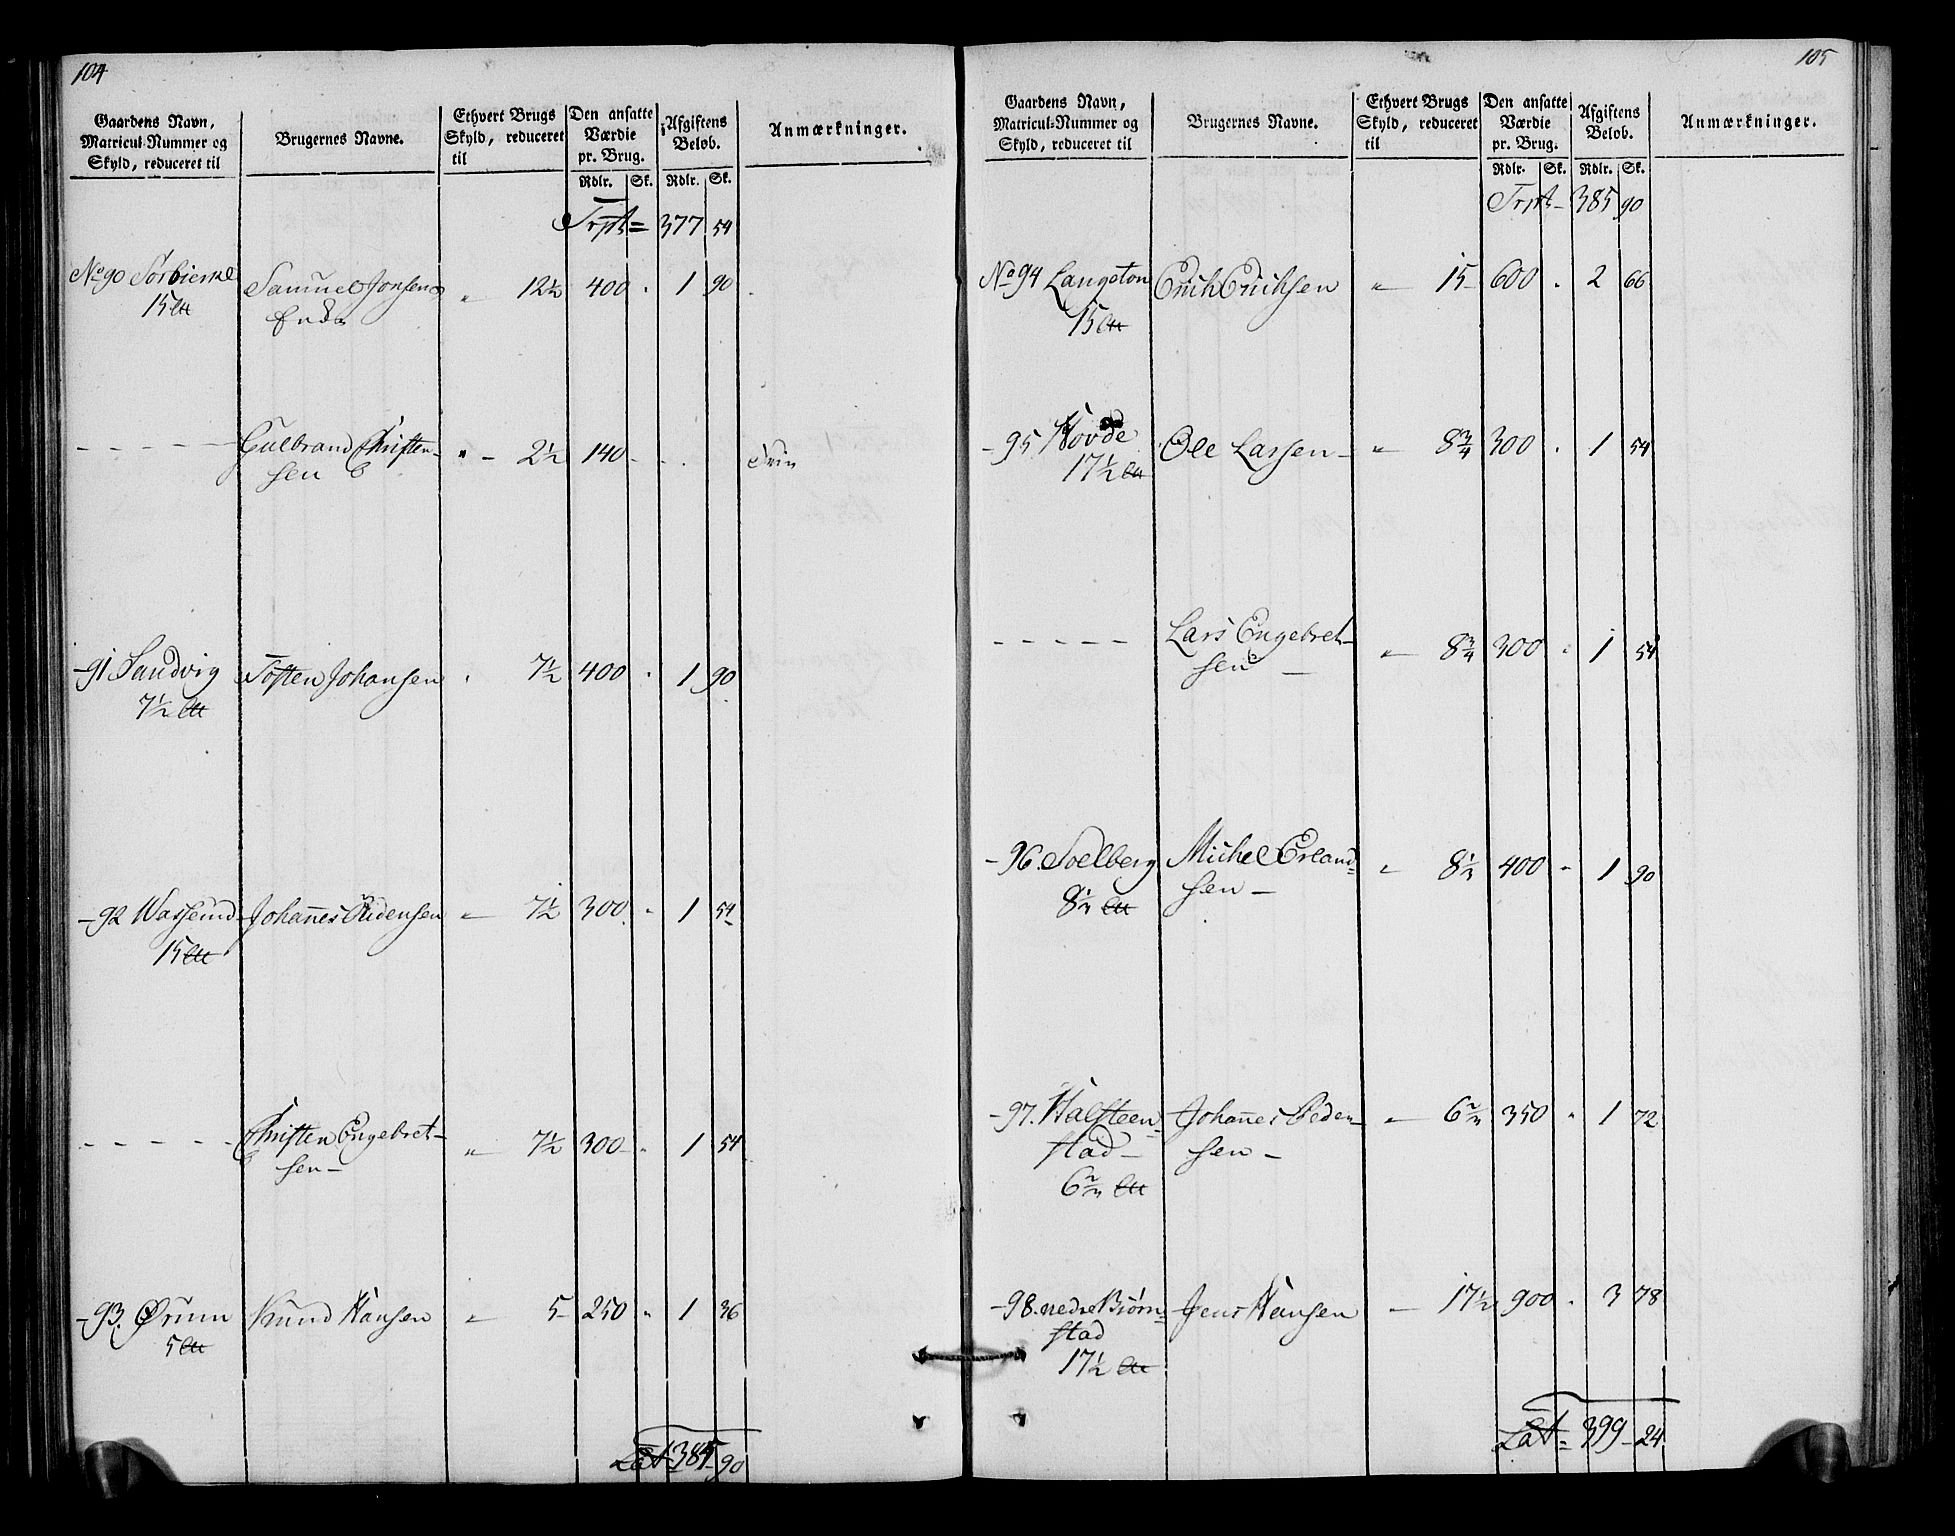 104
Gaardens Navn, Matricul-Nummer og Skyld, reduceret til | Brugernes Navne. | Ethvert Brugs Skyld, reduceret til | Den ansatte Værdie pr. Brug. | Afgiftens Beløb. | Anmærkninger.
Rdlr. | Sk. | Rdlr. | Sk.
Trpt = 377 54
No 90 Sørbierke Samuel Jonsen " 12½ 400 . 1 90
15 L℔ Enke
- - - - - Gulbrand Christen- " - 2½ 140 - - . Frie
sen
- 91 Sandvig Tosten Johansen " 7½ 400 . 1 90
7½ L℔
- 92 Wassend Johannes Pedensen " 7½ 300 " 1 54
15 L℔
- - - - - Christen Engebret- " 7½ 300 - " 1 54
sen -
- 93. Ørum Knud Hansen " 5 250 " 1 36
5 L℔
Lat 385 - 90
105
Gaardens Navn, Matricul-Nummer og Skyld, reduceret til | Brugernes Navne. | Ethvert Brugs Skyld, reduceret til | Den ansatte Værdie pr. Brug. | Afgiftens Beløb. | Anmærkninger.
Rdlr. | Sk. | Rdlr. | Sk.
Trpt - 385 90
No 94 Langston Erich Erichsen " 15 600 . 2 66
15 L℔
- 95 Hovde Ole Larsen - " 8¾ 300 . 1 54
17½ L℔
- - - - - Lars Engebret- " 8¾ 300 " 1 54
sen -
- 96. Soelberg Michel Erland= " 8⅓ 400 " 1 90
8⅓ L℔ sen -
- 97. Halsteen= Johannes Peder= " 6⅔ 350 " 1 72
stad - sen -
6⅔ L℔
- 98. nedre Biørn= Jens Hansen - 17½ 900 . 3 78
stad
17½ L℔
Lat = 399 - 24